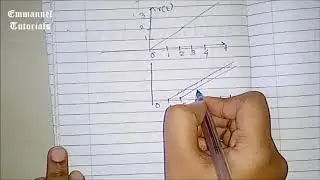 Emmanuel
Tutorials
3 r(t)
2
1
0 1 2 3 4 t
0